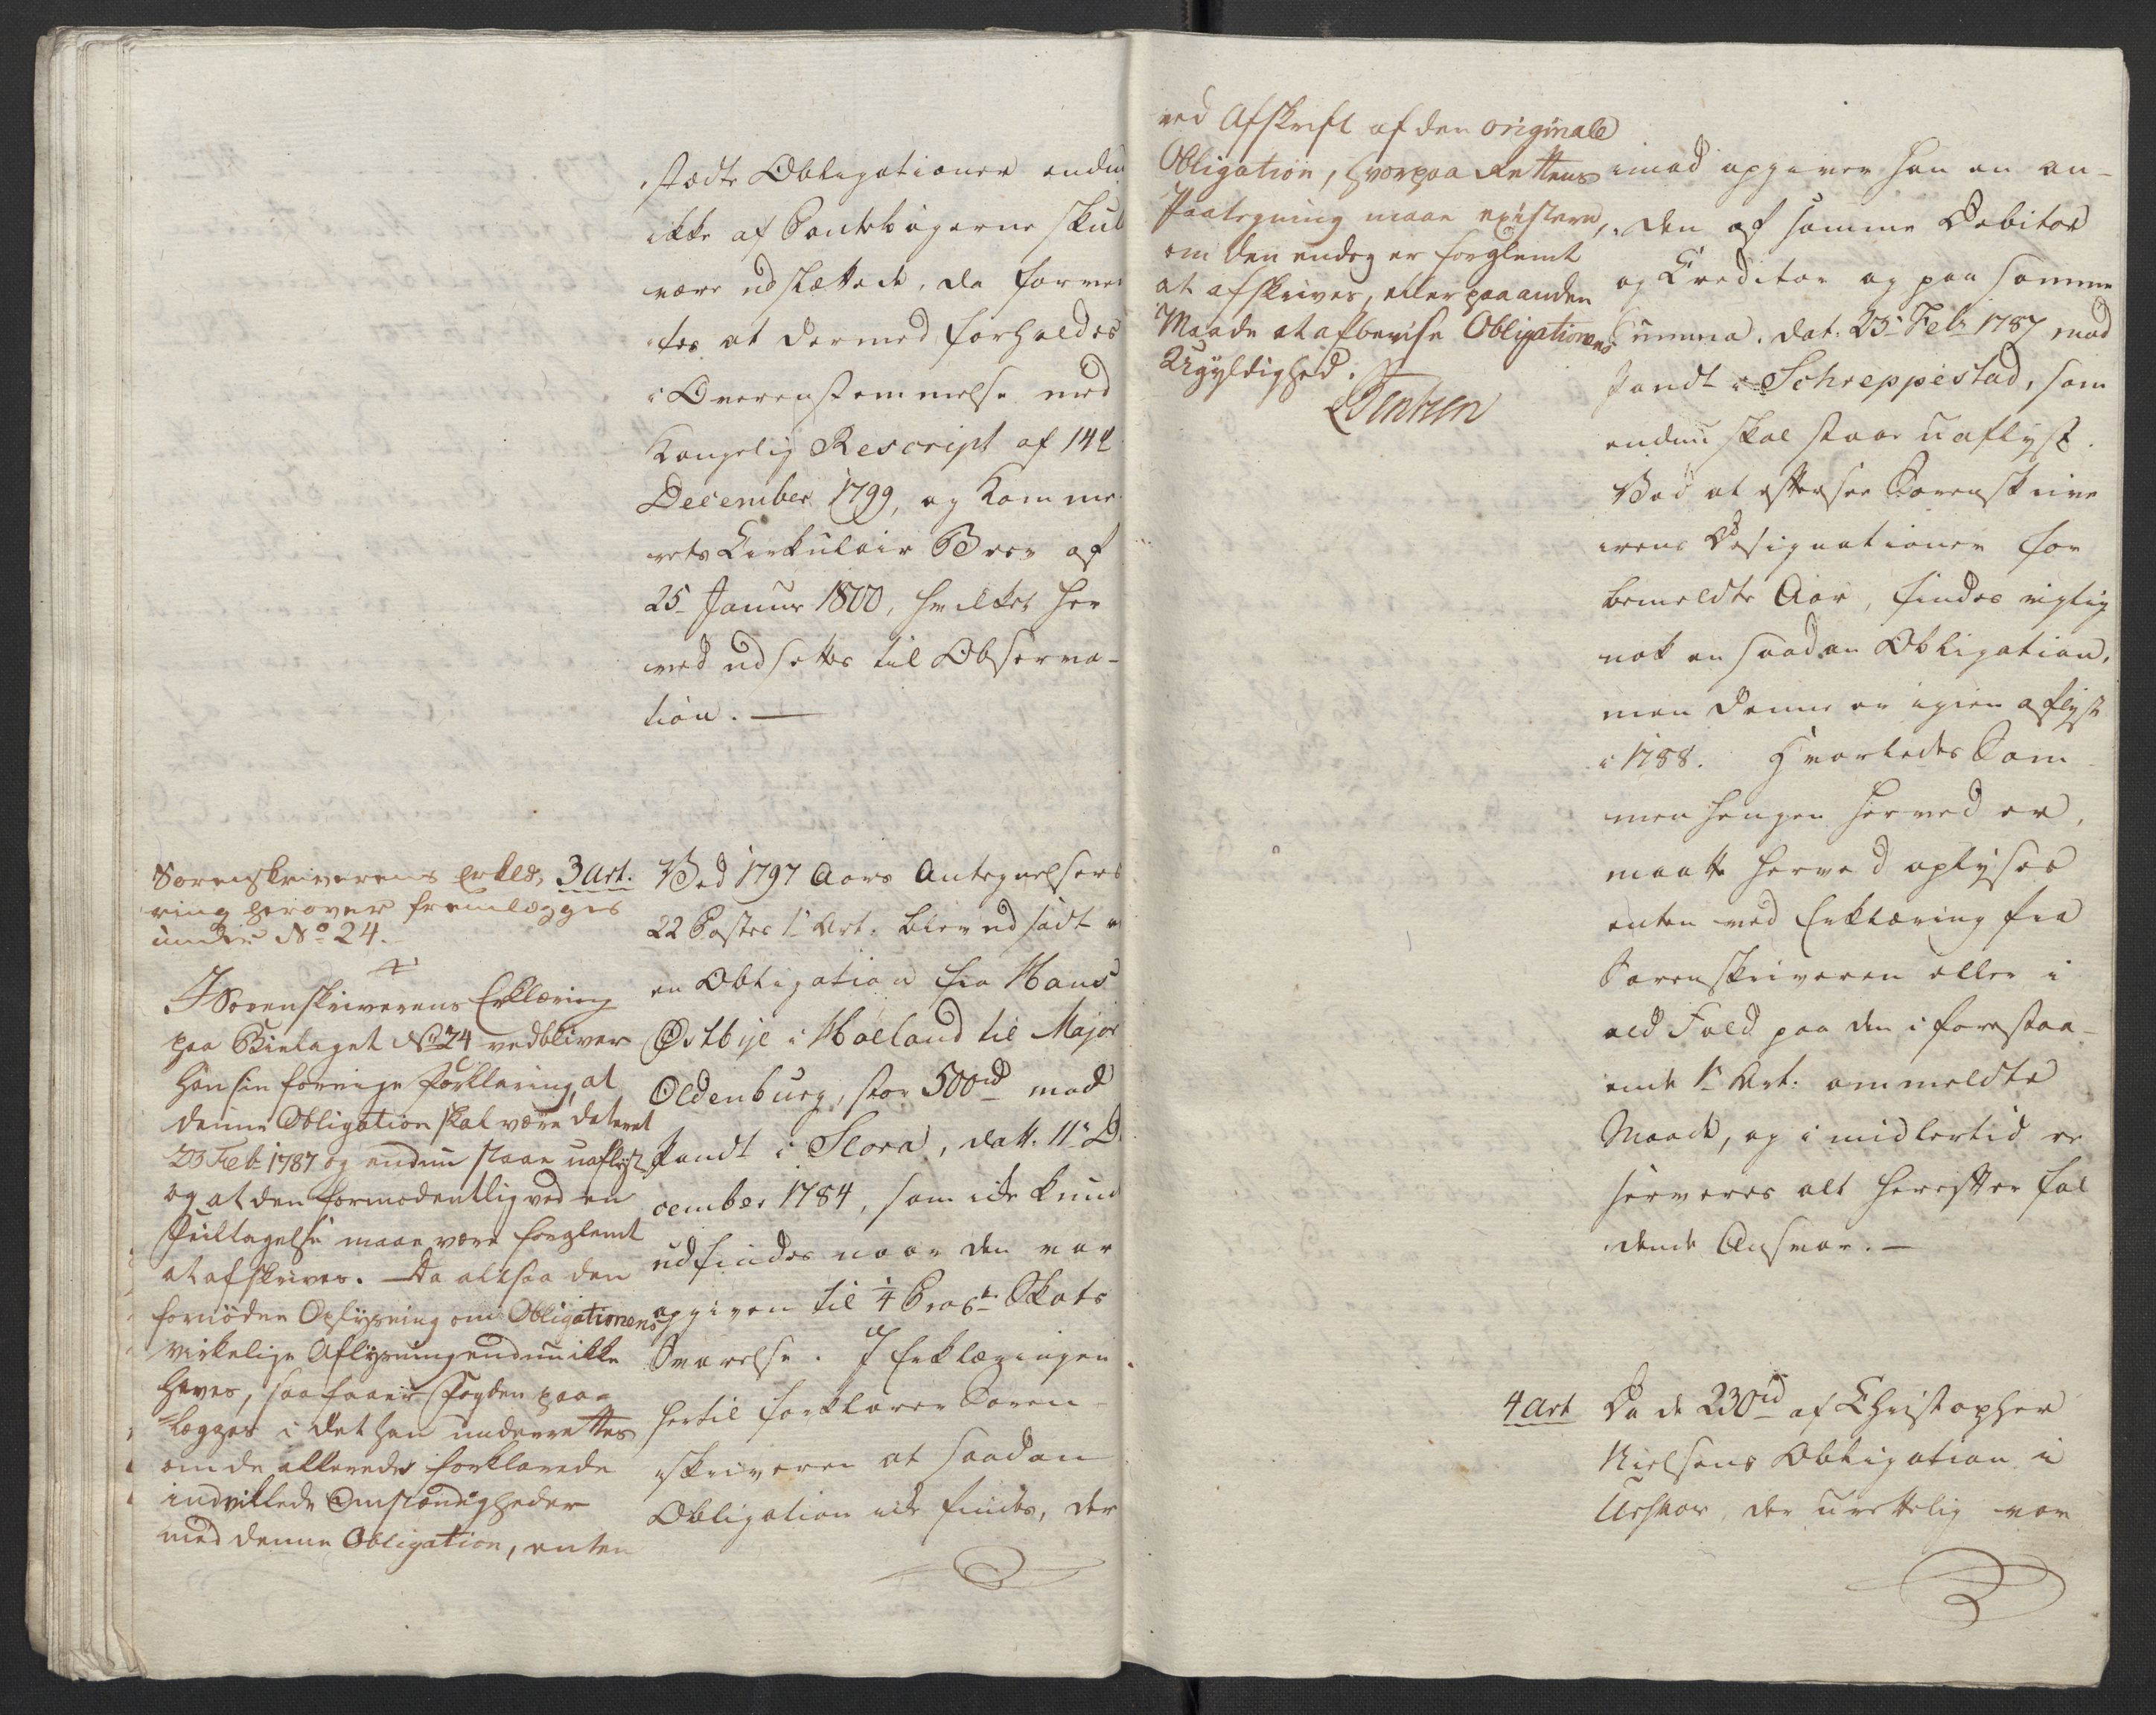 stædte Obligationer endnu
ikke af Pantebøgerne skul
være udslettede, da forven
tes at dermed forholdes
i Overensstemmelse med
Kongelig Rescript af 14de
December 1799, og Kamme
rets Cirkulair Brev af
25 Januar 1800, hvilket her
ved udsettes til Observa-
tion. —
Sorenskriverens Erklæ-
ring herover fremlægges
under No 24.
I Sorenskriverens Erklæring
paa Bielaget No 24 vedbliver
han sin forrige Forklaring, at
denne Obligation skal være dateret
23 Feb 1787 og endnu staae uaflyst
og at den formodentlig ved en
Feiltagelse maae være forglemt
at afskrives. Da altsaa den
fornødne Oplysning om Obligationens
virkelige Aflysning endnu ikke
haves, saa faaer Fogden paa-
lægges i det han underrettes
om de allerede forklarede
indviklede Omstændigheder
med denne Obligation, enten
3 Art.
Ved 1797 Aars Antegnelsers
22 Postes 1 Art. blev udsadt
en Obligation fra Hans
Østbye i Holland til Major
Oldenburg, stor 500rd mod
Pandt i Slora, dat. 11 De
cember 1784, som icke kund
udfindes naar den var
opgiven til ¼ Proc Skats
Svarelse. I Erklæringen
hertil forklarer Soren-
skriveren at saadan
Obligation icke findes, der
ved Afskrift af den originale
Obligation, hvorpaa Rettens
Paategning maae existere,
om den endog er forglemt
at afskrives, eller paa anden
Maade at afbevise Obligationens
Ugyldighed.
imod opgiver han en an-
den af samme Debitor
og Creditor og paa samme
Summa, dat. 23 Feb 1787 mod
Pandt i Schreppestad, som
endnu skal staae uaflyst.
Ved at eftersee Sorenskrive
rens Designationer for
bemeldte Aar, findes rigtig
nok en saadan Obligation,
men denne er igien aflyst
i 1788. Hvorledes Sam
menhengen herved er,
maatte herved oplyses
enten ved Erklæring fra
Sorenskriveren eller i
ald Fald paa den i forestaa-
ende 1 Art. ommeldte
Maade, og imidlertid re
serveres alt herefter fal
dende Ansvar. —
4 Art
Da de 230rd af Christopher
Nielsens Obligation i
der urettelig var